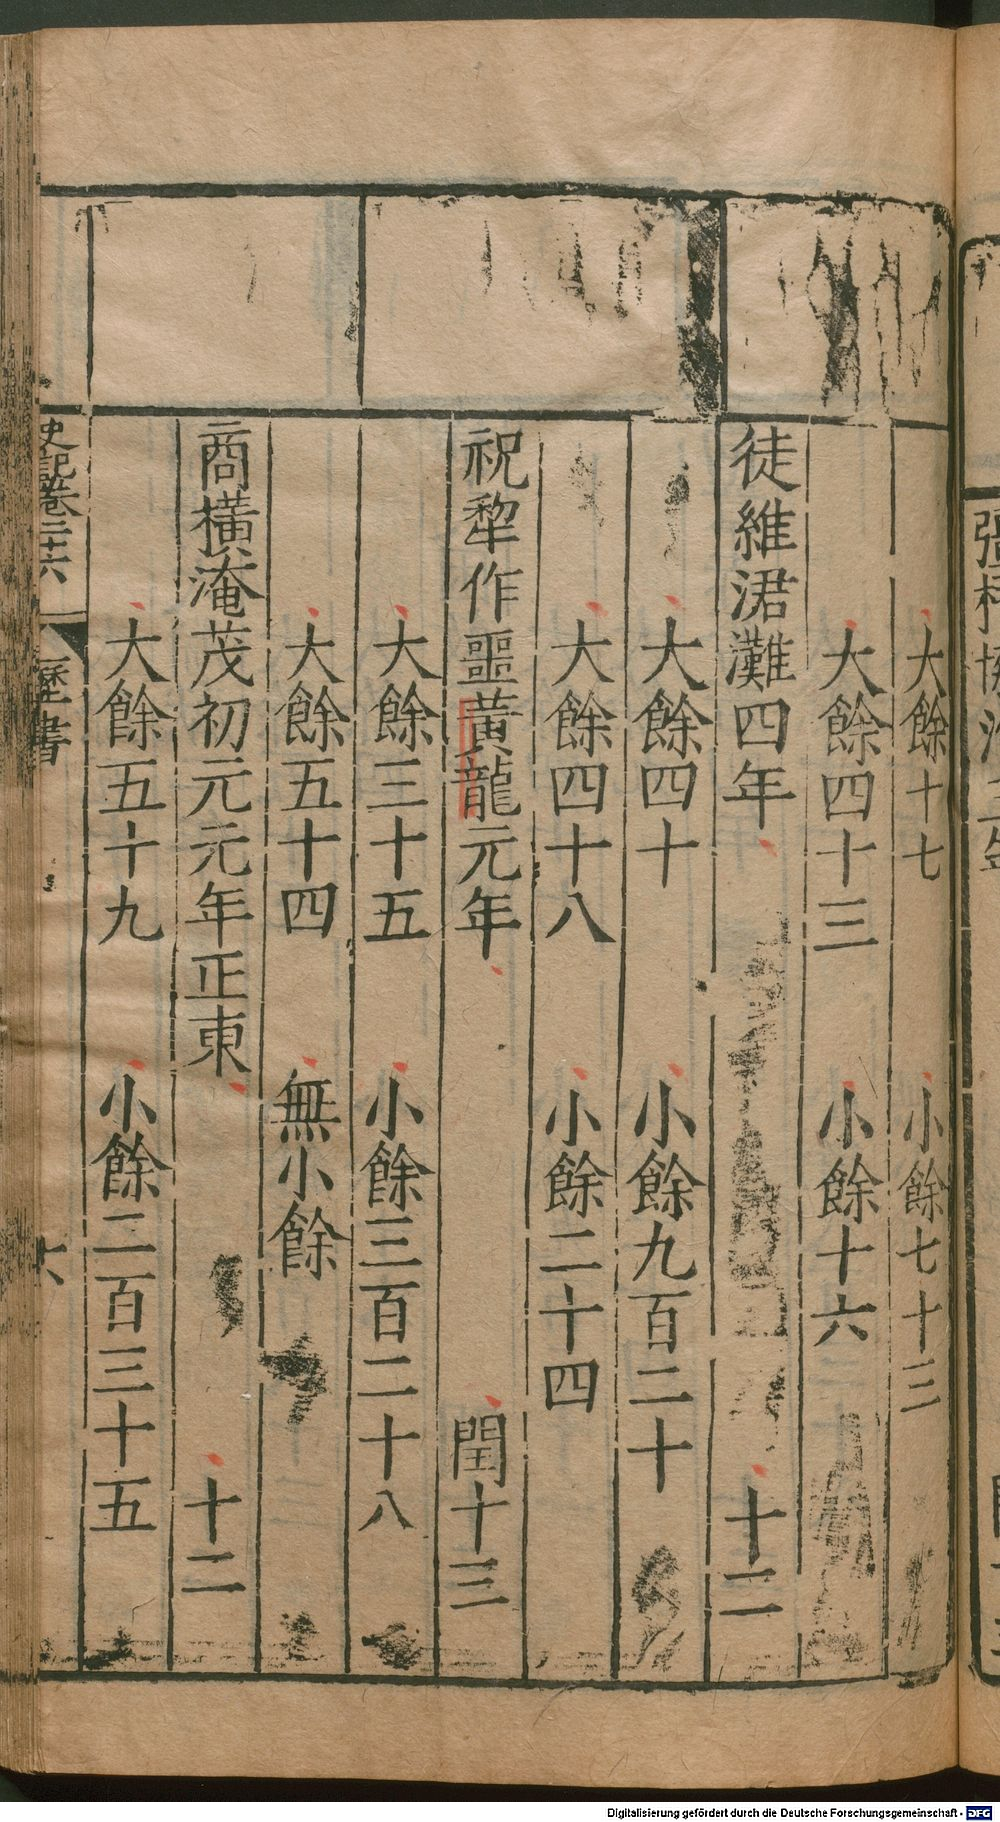 大餘十七 小餘七十三
大餘四十三 小餘十六
徒維涒灘四年 十二
大餘四十 小餘九百二十
大餘四十八 小餘二十四
祝犂作噩黃龍元年 閏十三
大餘三十五 小餘三百二十八
大餘五十四 無小餘
商橫淹茂初元元年正東 十二
大餘五十九 小餘二百三十五
史記卷二十六 歷書
Digitalisierung gefördert durch die Deutsche Forschungsgemeinschaft - DFG